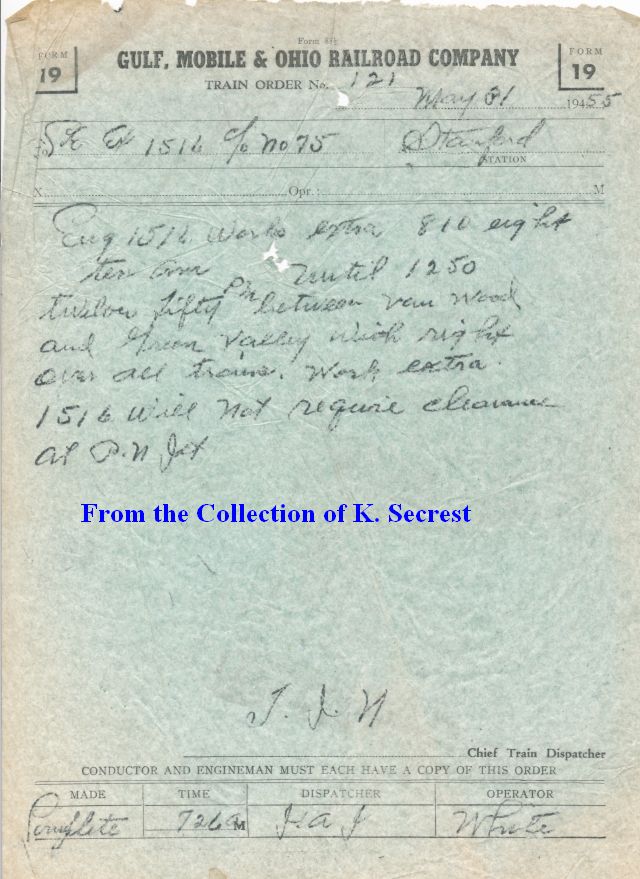 Form 8½
FORM 19
GULF, MOBILE & OHIO RAILROAD COMPANY
FORM 19
TRAIN ORDER No. 121
May 31 19455
Ex 1516 c/o No 75 Stanford
STATION
X Opr.: M
Eng 1516 works extra 810 eight
ten am until 1250
twelve fifty pm between Van Wood
and Green Valley with right
over all trains. Work extra
1516 will not require clearance
at P.N Jct
From the Collection of K. Secrest
Chief Train Dispatcher
CONDUCTOR AND ENGINEMAN MUST EACH HAVE A COPY OF THIS ORDER
MADE TIME DISPATCHER OPERATOR
Complete 726a M White